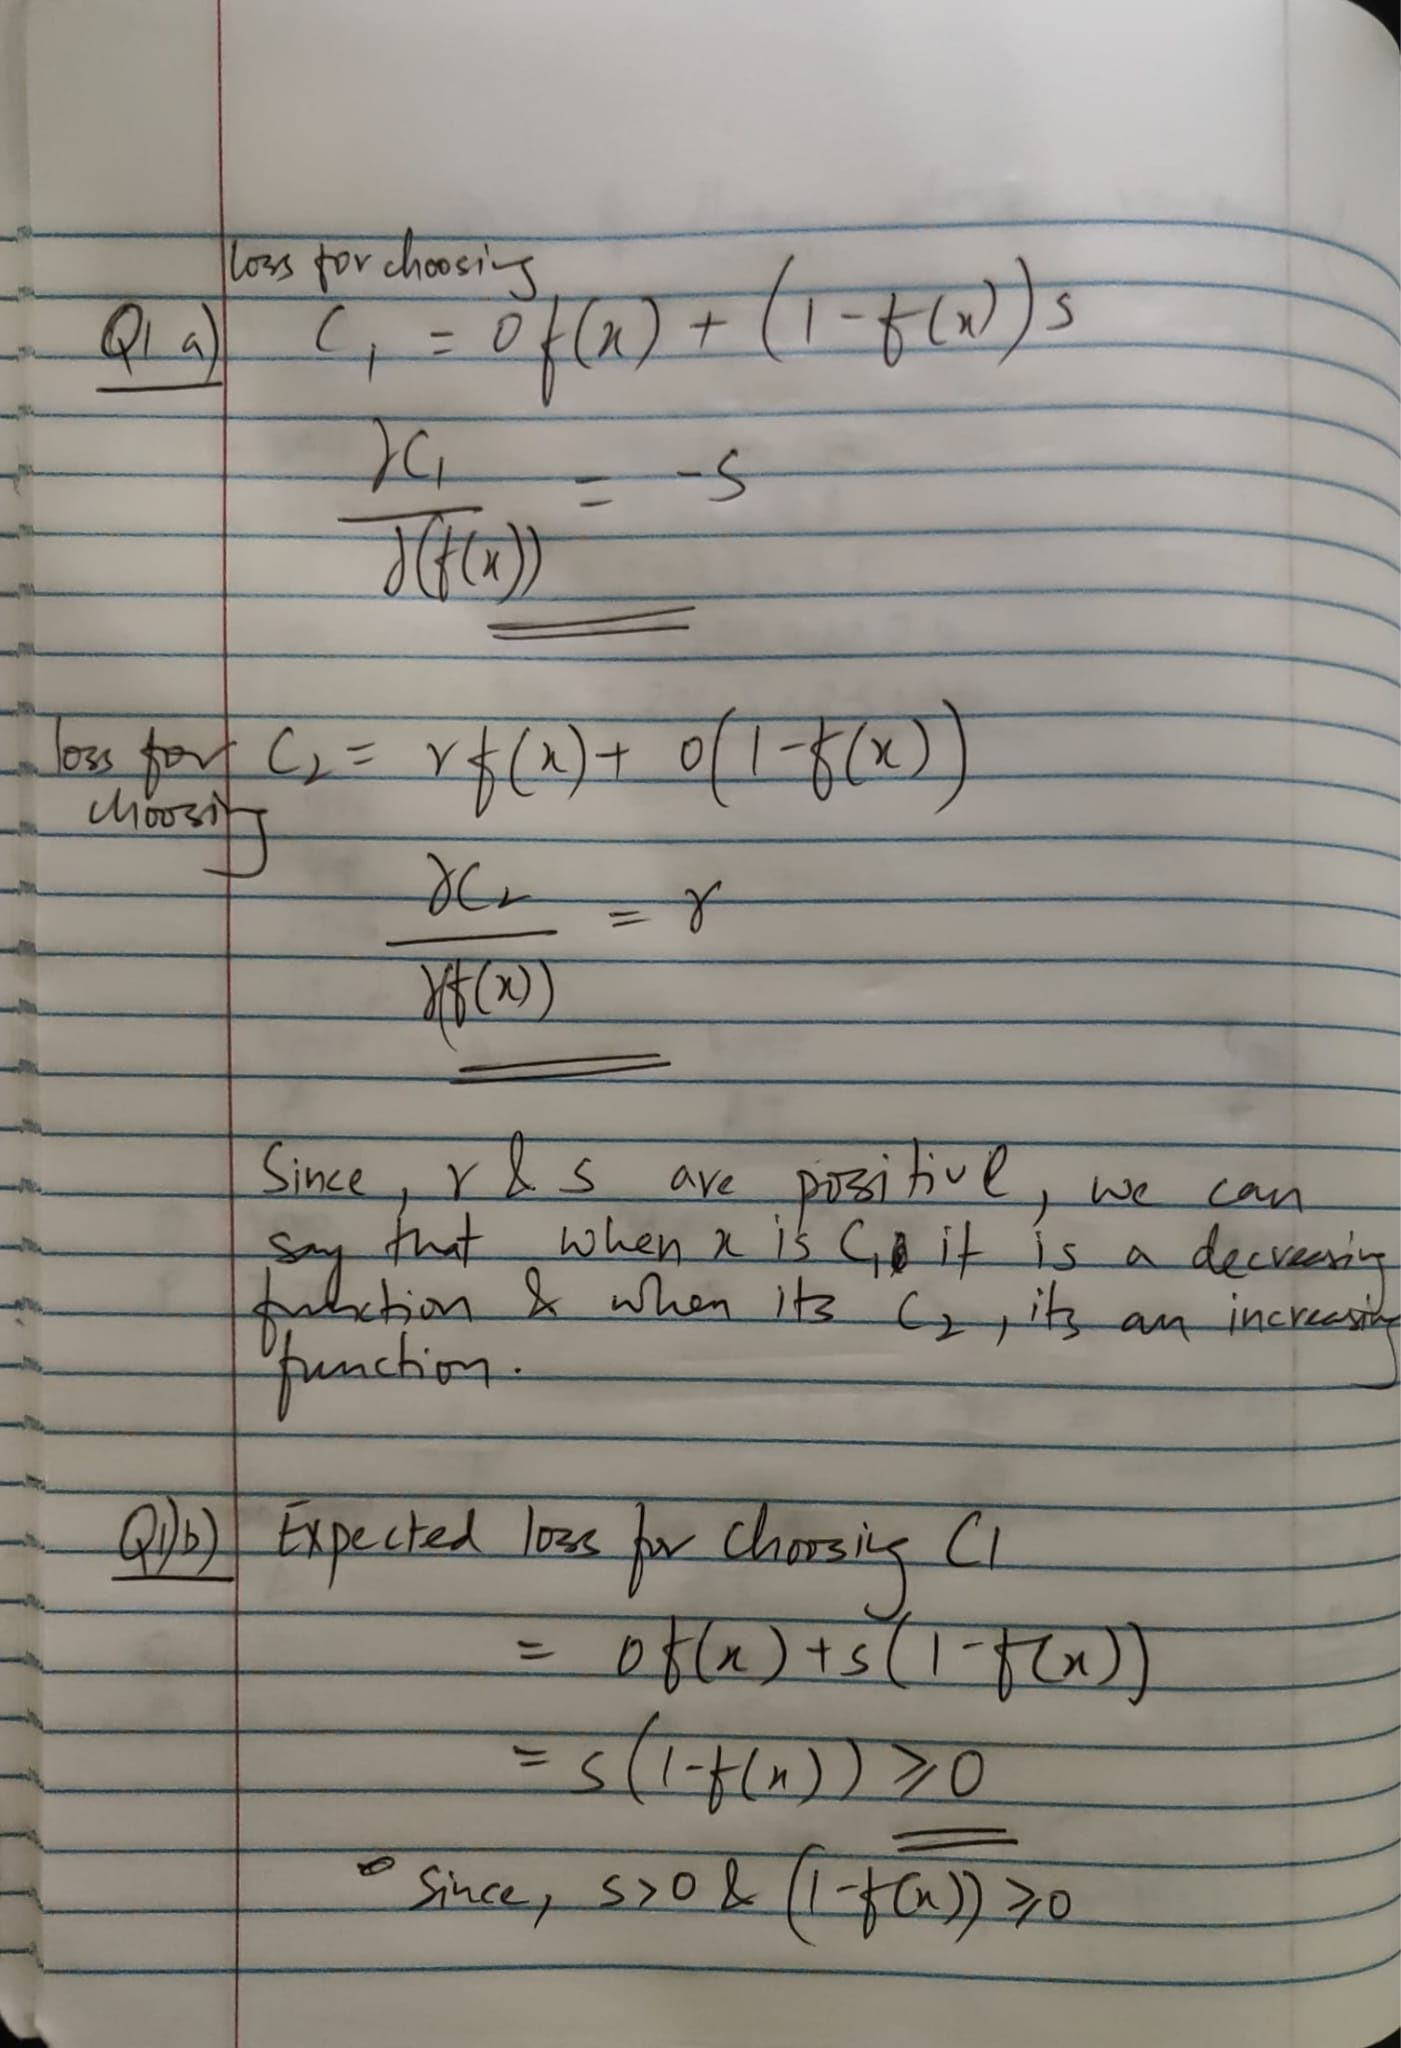 loss for choosing
Q1 a) C₁ = 0f(x) + (1-f(x))s
∂C₁
/∂(f(x)) = -s
loss for choosing C₂ = rf(x) + 0(1-f(x))
∂C₂
/∂(f(x)) = r
Since, r & s are positive, we can
say that when x is C₁ it is a decreasing
function & when its C₂, its an increasing
function.
Q1)b) Expected loss for choosing C1
= 0f(x) + s(1-f(x))
= s(1-f(x)) ⩾ 0
Since, s>0 & (1-f(x)) ⩾ 0